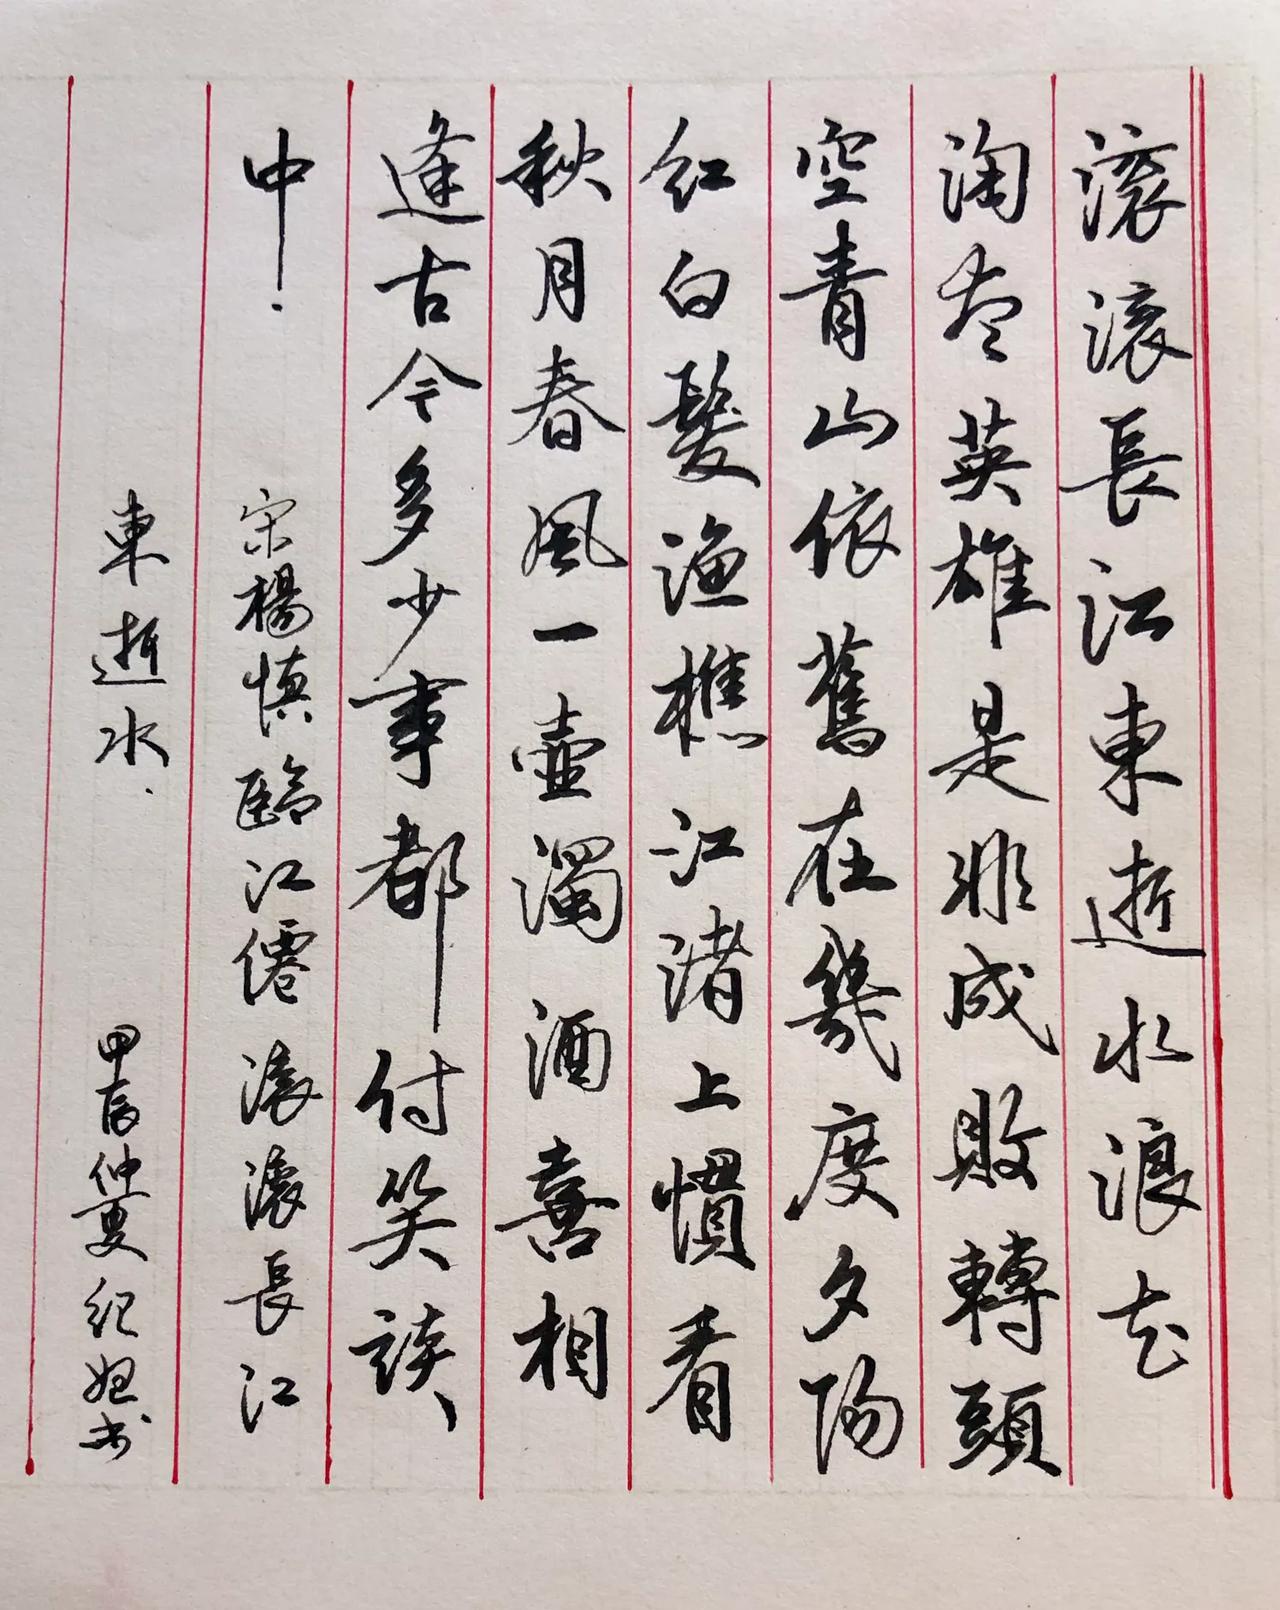 滚滚長江東逝水浪花
淘尽英雄是非成敗轉頭
空青山依舊在幾度夕陽
红白髮渔樵江渚上慣看
秋月春風一壺濁酒喜相
逢古今多少事都付笑談
中.
宋楊慎臨江僊滚滚長江
東逝水.
甲辰仲夏纪妞书